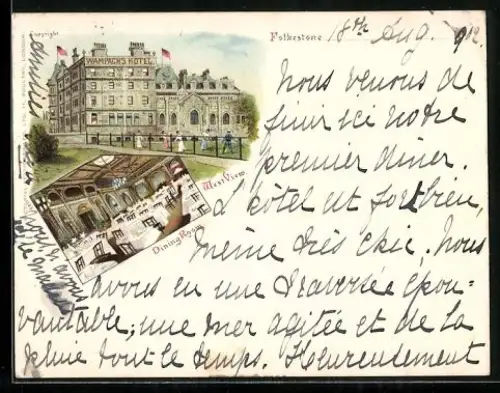 Copyright
WAMPACH'S HOTEL
Folkestone 18th Aug. 9
West View
Dining Room
Nous venons de
finir ici notre
premier diner.
L'hôtel est fort bien,
même très chic. Nous
avons eu une traversée épou-
vantable; une mer agitée et de la
pluie tout le temps. Heureusement